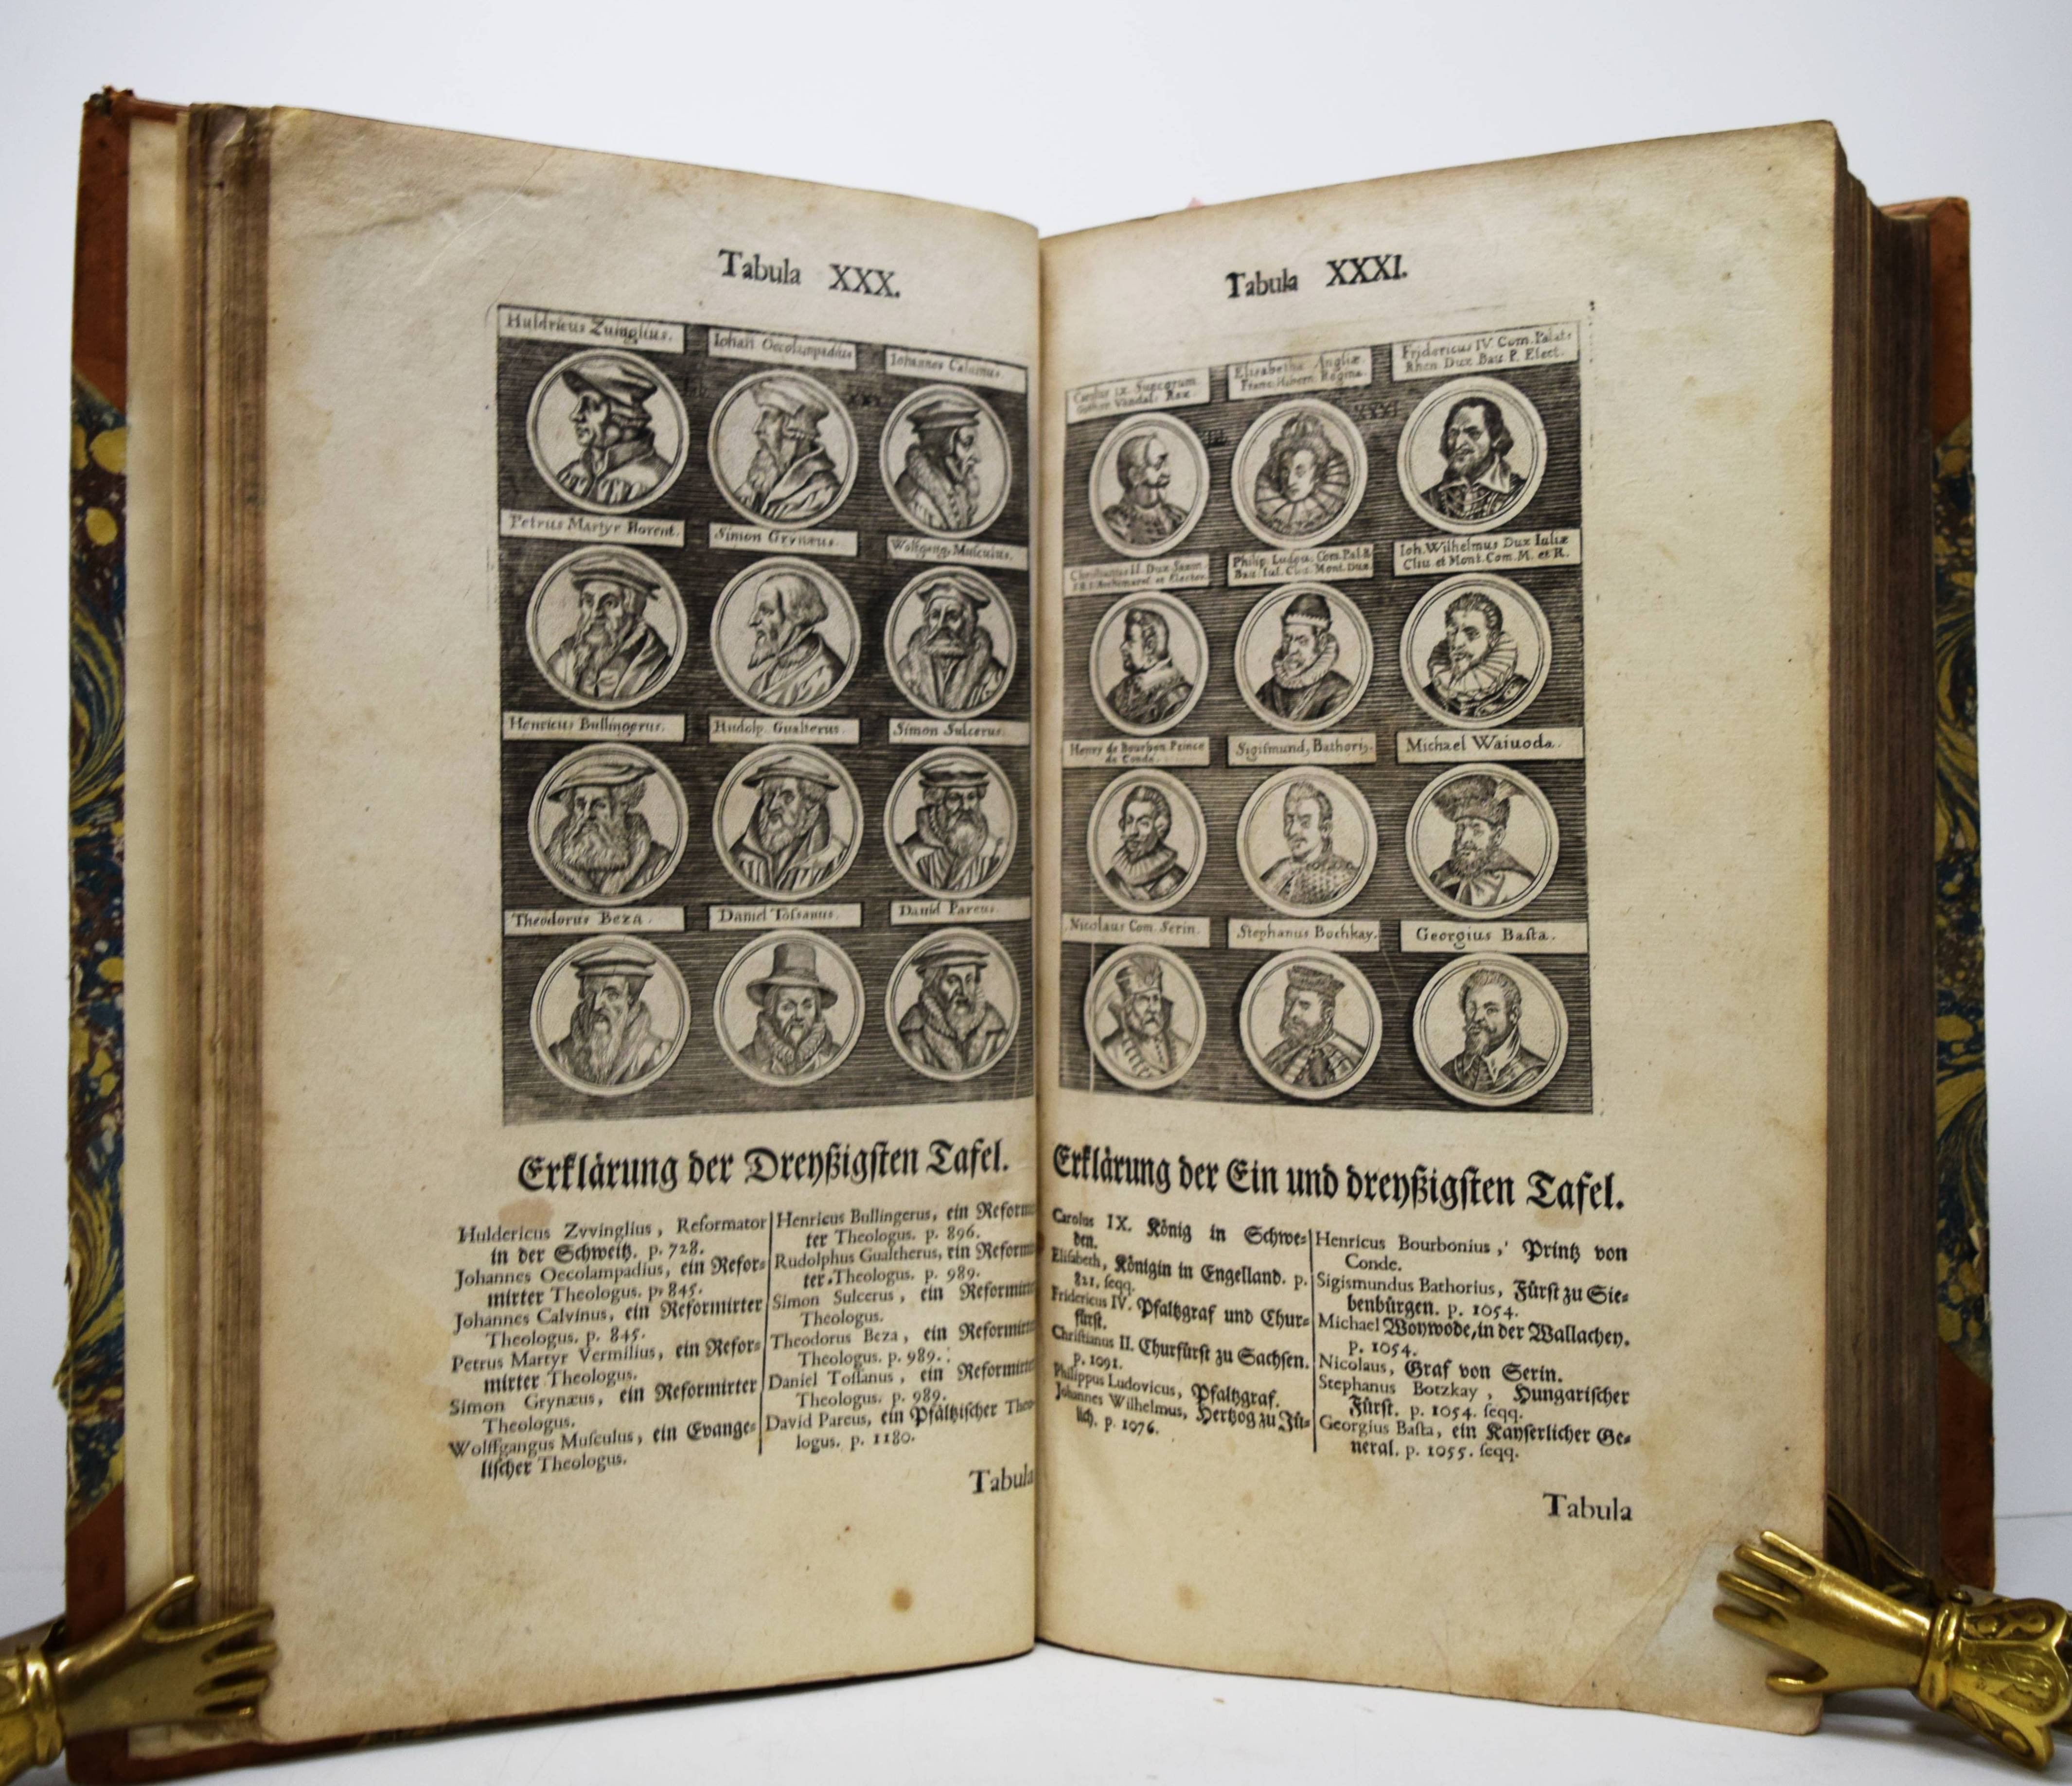 Tabula XXX.
Huldricus Zuinglius.
Iohan Oecolampadius
Iohannes Caluinus.
Petrus Martyr Florent.
Simon Grynæus.
Wolfgang, Musculus.
Henricus Bullingerus.
Rudolp. Gualterus.
Simon Sulcerus.
Theodorus Beza.
Daniel Tossanus.
Dauid Pareus.
Erklärung der Dreyßigſten Tafel.
Huldericus Zvvinglius, Reformator
in der Schweitz. p. 728.
Johannes Oecolampadius, ein Refor-
mirter Theologus. p. 845.
Johannes Calvinus, ein Reformirter
Theologus. p. 845.
Petrus Martyr Vermilius, ein Refor-
mirter Theologus.
Simon Grynæus, ein Reformirter
Theologus.
Wolffgangus Muſculus, ein Evange-
liſcher Theologus.
Henricus Bullingerus, ein Reformir
ter Theologus. p. 896.
Rudolphus Gualtherus, ein Reformir
ter Theologus. p. 989.
Simon Sulcerus, ein Reformirter
Theologus.
Theodorus Beza, ein Reformirter
Theologus. p. 989.
Daniel Toſſanus, ein Reformirter
Theologus. p. 989.
David Pareus, ein Pfältziſcher Theo-
logus. p. 1180.
Tabula
Tabula XXXI.
Carolus IX. Suecorum
Gothor. Vandal. Rex.
Elisabetha Angliæ.
Franc. Hibern. Regina.
Fridericus IV Com. Palat:
Rhen Dux Bau P. Elect.
Christianus II. Dux Saxon.
et Elector.
Philip. Ludou. Com. Pal.R.
Bau. Iul. Cliu. Mont. Dux.
Ioh. Wilhelmus Dux Iuliæ
Cliu et Mont. Com. M. et R.
Henry de Bourbon Prince
de Conde.
Sigiſmund, Bathori9.
Michael Waiuoda.
Nicolaus Com. Serin.
Stephanus Bochkay.
Georgius Baſta.
Erklärung der Ein und dreyßigſten Tafel.
Carolus IX. König in Schwe-
den.
Eliſabeth, Königin in Engelland. p.
821. ſeqq.
Fridericus IV. Pfaltzgraf und Chur-
fürſt.
Chriſtianus II. Churfürſt zu Sachſen.
p. 1091.
Philippus Ludovicus, Pfaltzgraf.
Johannes Wilhelmus, Hertzog zu Jü-
lich. p. 1076.
Henricus Bourbonius, Printz von
Conde.
Sigismundus Bathorius, Fürſt zu Sie-
benbürgen. p. 1054.
Michael Woywode, in der Wallachey.
p. 1054.
Nicolaus, Graf von Serin.
Stephanus Botzkay, Hungariſcher
Fürſt. p. 1054. ſeqq.
Georgius Baſta, ein Kayſerlicher Ge-
neral. p. 1055. ſeqq.
Tabula